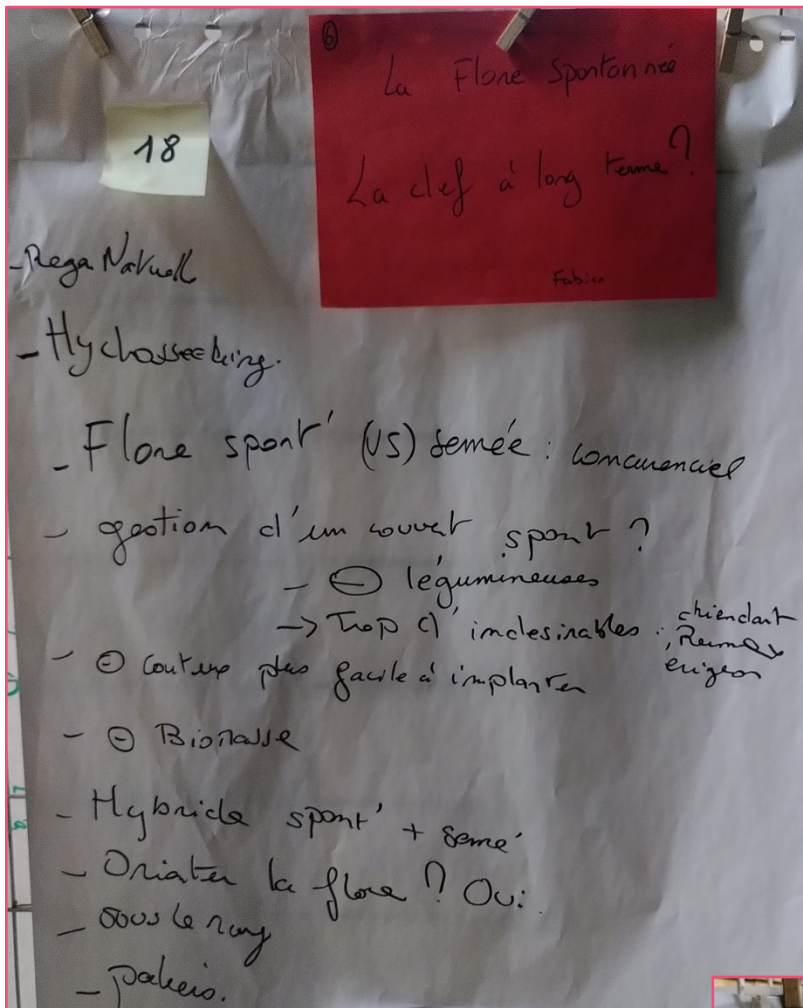 ⑥
La Flore Spontannée
La clef à long terme ?
Fabien
18
- Rega Naturall
- Hychasseeding.
- Flore spont' (VS) semée : concurenciel
- gestion d'un couvert spont ?
- ⊖ légumineuses
-> Trop d'indesirables : chiendant
, Rumex
erigeron
- ⊖ couteux plus facile à implanter
- ⊖ Biomasse
- Hybride spont' + semé
- Orienter la flore ? Oui.
- sous le rang
- paheis.